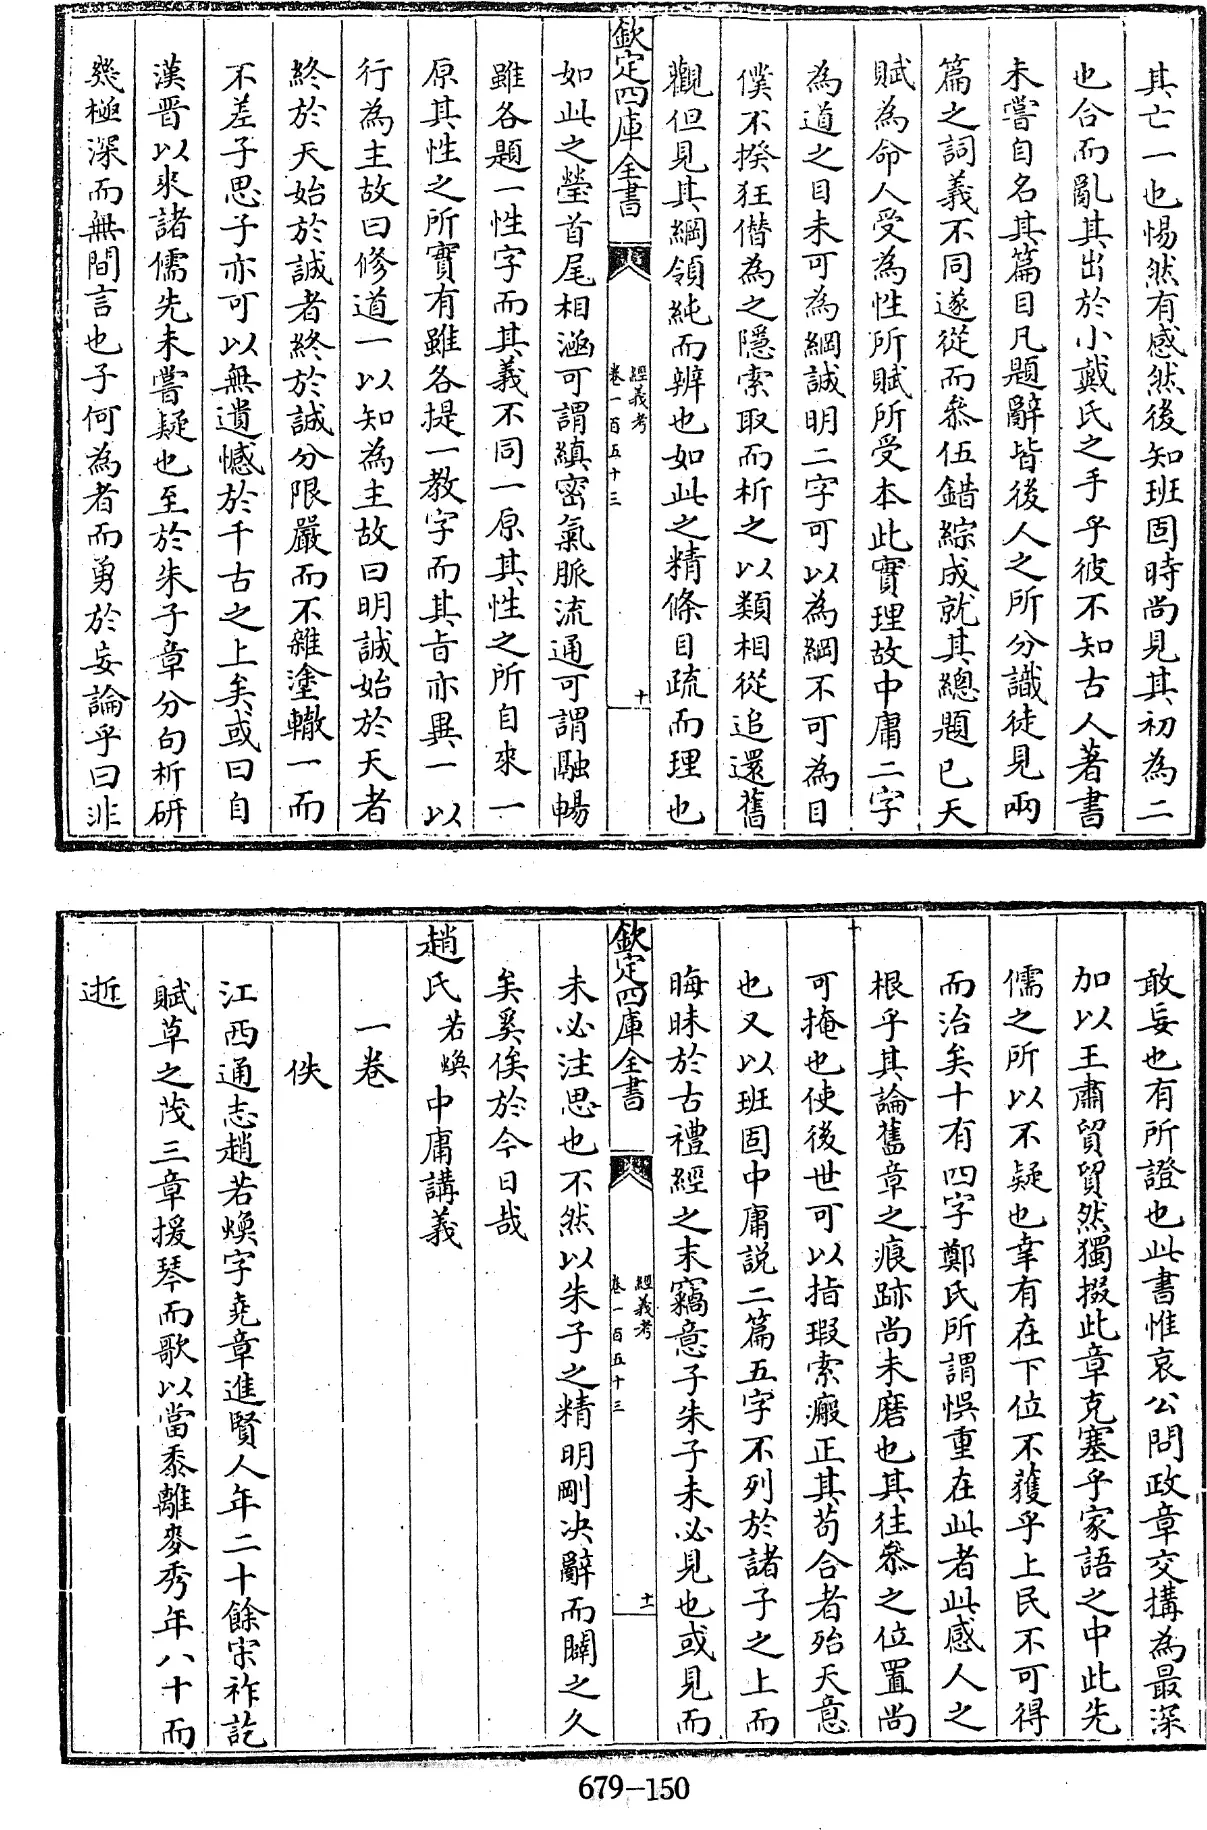 其亡一也惕然有感然後知班固時尚見其初為二
也合而亂其出於小戴氏之手乎彼不知古人著書
未嘗自名其篇目凡題辭皆後人之所分識徒見兩
篇之詞義不同遂從而叅伍錯綜成就其總題已天
賦為命人受為性所賦所受本此實理故中庸二字
為道之目未可為綱誠明二字可以為綱不可為目
僕不揆狂僭為之隱索取而析之以類相從追還舊
觀但見其綱領純而辨也如此之精條目疏而理也
欽定四庫全書
經義考
卷一百五十三
十
如此之瑩首尾相涵可謂縝密氣脈流通可謂融暢
雖各題一性字而其義不同一原其性之所自來一
原其性之所實有雖各提一教字而其旨亦異一以
行為主故曰修道一以知為主故曰明誠始於天者
終於天始於誠者終於誠分限嚴而不雜塗轍一而
不差子思子亦可以無遺憾於千古之上矣或曰自
漢晉以來諸儒先未嘗疑也至於朱子章分句析研
幾極深而無間言也子何為者而勇於妄論乎曰非
敢妄也有所證也此書惟哀公問政章交搆為最深
加以王肅貿貿然獨掇此章克塞乎家語之中此先
儒之所以不疑也幸有在下位不獲乎上民不可得
而治矣十有四字鄭氏所謂悞重在此者此感人之
根乎其論舊章之痕跡尚未磨也其往叅之位置尚
可掩也使後世可以指瑕索瘢正其苟合者殆天意
也又以班固中庸説二篇五字不列於諸子之上而
晦昧於古禮經之末竊意子朱子未必見也或見而
欽定四庫全書
經義考
卷一百五十三
十一
未必注思也不然以朱子之精明剛決辭而闢之久
矣奚俟於今日哉
趙氏若煥中庸講義
一卷
佚
江西通志趙若煥字堯章進賢人年二十餘宋祚訖
賦草之茂三章援琴而歌以當黍離麥秀年八十而
逝
679-150